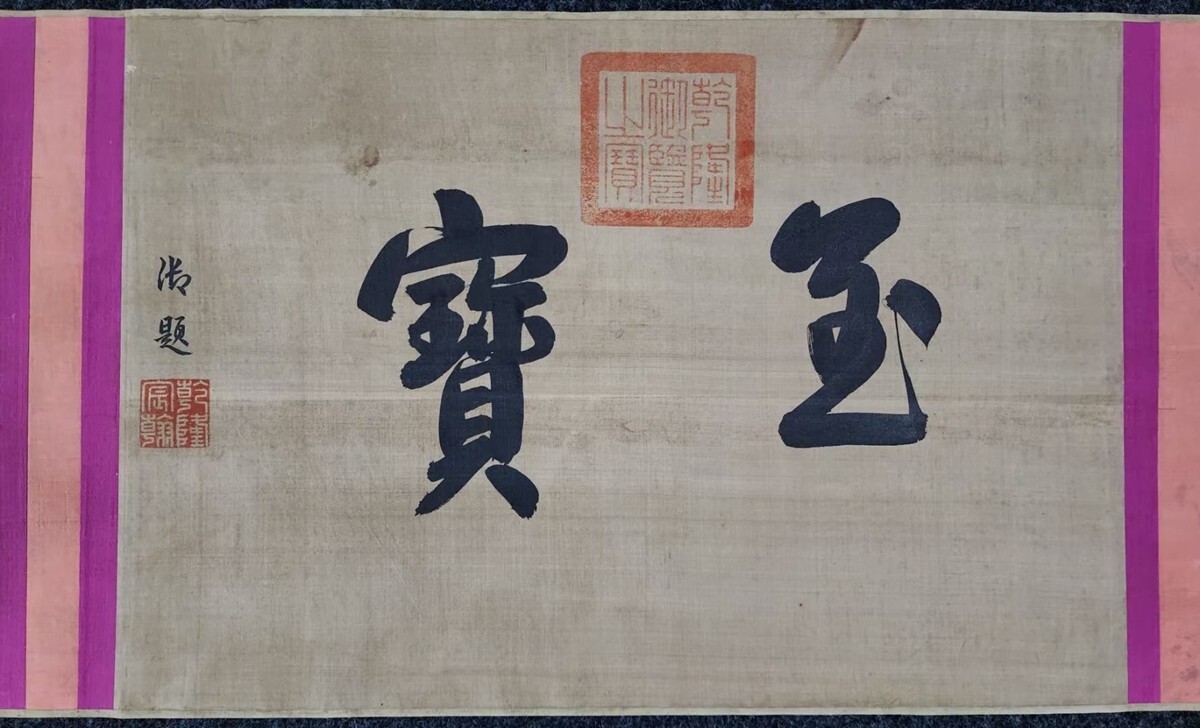 至寶
乾隆
御覽
之寶
御題
乾隆
宸翰